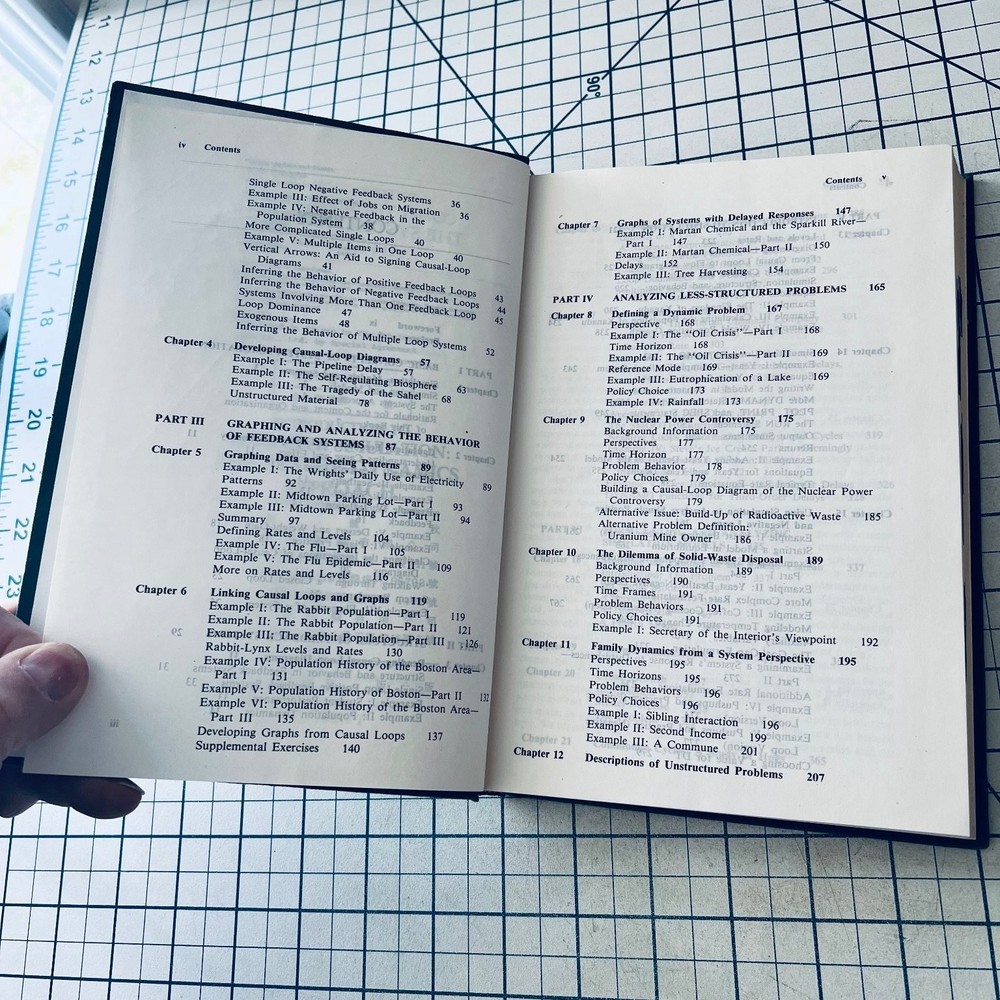 11
12
13
14
15
16
17
18
19
20
21
22
23
90°
iv Contents
Single Loop Negative Feedback Systems 36
Example III: Effect of Jobs on Migration 36
Example IV: Negative Feedback in the
Population System 38
More Complicated Single Loops 40
Example V: Multiple Items in One Loop 40
Vertical Arrows: An Aid to Signing Causal-Loop
Diagrams 41
Inferring the Behavior of Positive Feedback Loops 43
Inferring the Behavior of Negative Feedback Loops 44
Systems Involving More Than One Feedback Loop 45
Loop Dominance 47
Exogenous Items 48
Inferring the Behavior of Multiple Loop Systems 52
Chapter 4 Developing Causal-Loop Diagrams 57
Example I: The Pipeline Delay 57
Example II: The Self-Regulating Biosphere 63
Example III: The Tragedy of the Sahel 68
Unstructured Material 78
PART III GRAPHING AND ANALYZING THE BEHAVIOR
OF FEEDBACK SYSTEMS 87
Chapter 5 Graphing Data and Seeing Patterns 89
Example I: The Wrights' Daily Use of Electricity 89
Patterns 92
Example II: Midtown Parking Lot—Part I 93
Example III: Midtown Parking Lot—Part II 94
Summary 97
Defining Rates and Levels 104
Example IV: The Flu—Part I 105
Example V: The Flu Epidemic—Part II 109
More on Rates and Levels 116
Chapter 6 Linking Causal Loops and Graphs 119
Example I: The Rabbit Population—Part I 119
Example II: The Rabbit Population—Part II 121
Example III: The Rabbit Population—Part III 126
Rabbit-Lynx Levels and Rates 130
Example IV: Population History of the Boston Area—
Part I 131
Example V: Population History of Boston—Part II 132
Example VI: Population History of the Boston Area—
Part III 135
Developing Graphs from Causal Loops 137
Supplemental Exercises 140
Contents v
Chapter 7 Graphs of Systems with Delayed Responses 147
Example I: Martan Chemical and the Sparkill River—
Part I 147
Example II: Martan Chemical—Part II 150
Delays 152
Example III: Tree Harvesting 154
PART IV ANALYZING LESS-STRUCTURED PROBLEMS 165
Chapter 8 Defining a Dynamic Problem 167
Perspective 168
Example I: The "Oil Crisis"—Part I 168
Time Horizon 168
Example II: The "Oil Crisis"—Part II 169
Reference Mode 169
Example III: Eutrophication of a Lake 169
Policy Choice 173
Example IV: Rainfall 173
Chapter 9 The Nuclear Power Controversy 175
Background Information 175
Perspectives 177
Time Horizon 177
Problem Behavior 178
Policy Choices 179
Building a Causal-Loop Diagram of the Nuclear Power
Controversy 179
Alternative Issue: Build-Up of Radioactive Waste 185
Alternative Problem Definition:
Uranium Mine Owner 186
Chapter 10 The Dilemma of Solid-Waste Disposal 189
Background Information 189
Perspectives 190
Time Frames 191
Problem Behaviors 191
Policy Choices 191
Example I: Secretary of the Interior's Viewpoint 192
Chapter 11 Family Dynamics from a System Perspective 195
Perspectives 195
Time Horizons 195
Problem Behaviors 196
Policy Choices 196
Example I: Sibling Interaction 196
Example II: Second Income 199
Example III: A Commune 201
Chapter 12 Descriptions of Unstructured Problems 207